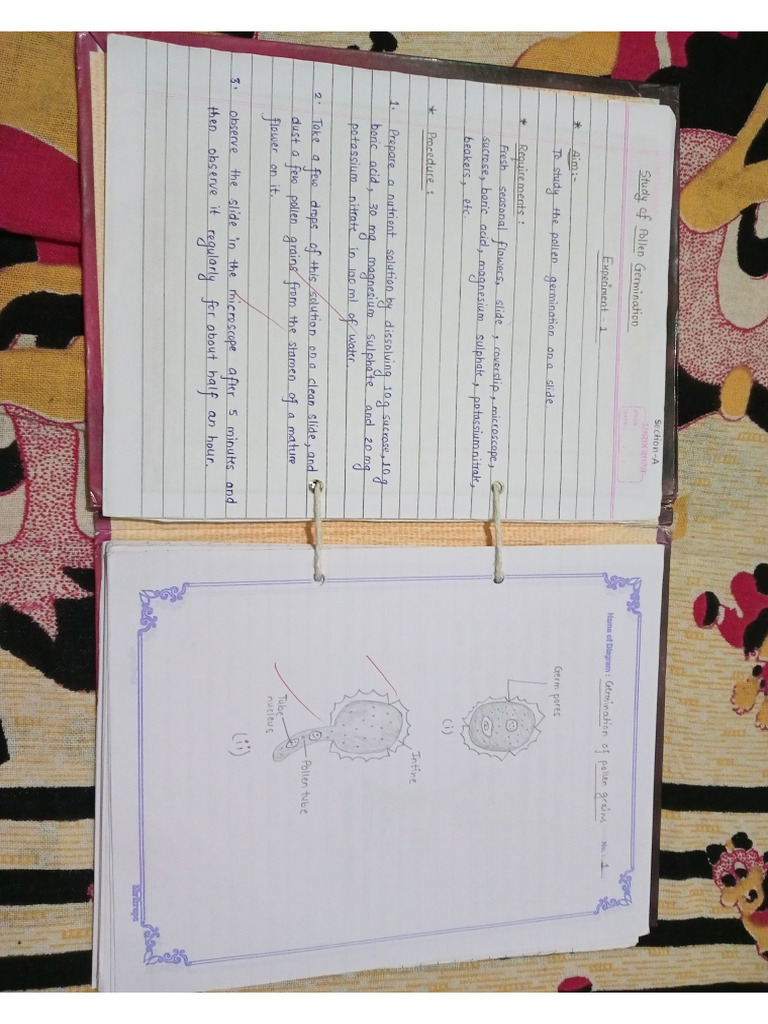 Section-A
Study of Pollen Germination
Experiment - 1
* Aim:-
To study the pollen germination on a slide
* Requirements:
Fresh seasonal flowers, slide, coverslip, microscope,
sucrose, boric acid, magnesium sulphate, potassium nitrate,
beakers, etc.
* Procedure:
1. Prepare a nutrient solution by dissolving 10g sucrose, 10g
boric acid, 30 mg magnesium sulphate and 20 mg
potassium nitrate in 100 ml of water.
2. Take a few drops of this solution on a clean slide, and
dust a few pollen grains from the stamen of a mature
flower on it.
3. Observe the slide in the microscope after 5 minutes and
then observe it regularly for about half an hour.
Name of Diagram: Germination of pollen grains No.: 1
Germ pores
(i)
Intine
Tube
nucleus
Pollen tube
(ii)